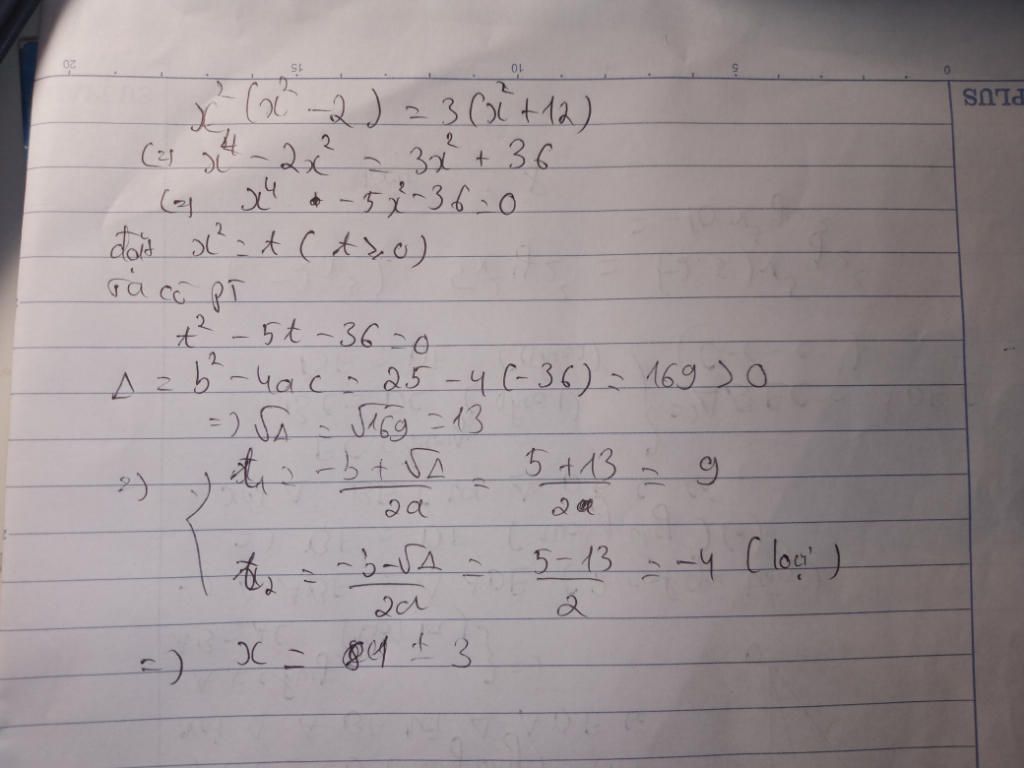 20 15 10 5 0
PLUS
x² (x² - 2) = 3(x² + 12)
(=) x⁴ - 2x² = 3x² + 36
(=) x⁴ - 5x² - 36 = 0
đặt x² = t ( t ⩾ 0)
Ta có PT
t² - 5t - 36 = 0
Δ = b² - 4ac = 25 - 4(-36) = 169 > 0
=) √Δ = √169 = 13
=) t₁ = (-b + √Δ)/2a = (5 + 13)/2 = 9
t₂ = (-b - √Δ)/2a = (5 - 13)/2 = -4 (loại)
=) x = ± 3